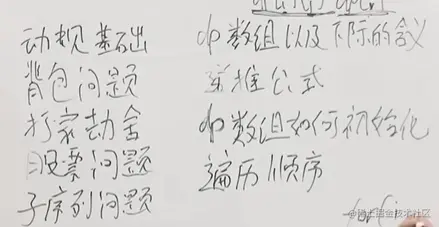 动规基础
背包问题
打家劫舍
股票问题
子序列问题
dp数组以及下标的含义
递推公式
dp数组如何初始化
遍历顺序
@稀土掘金技术社区